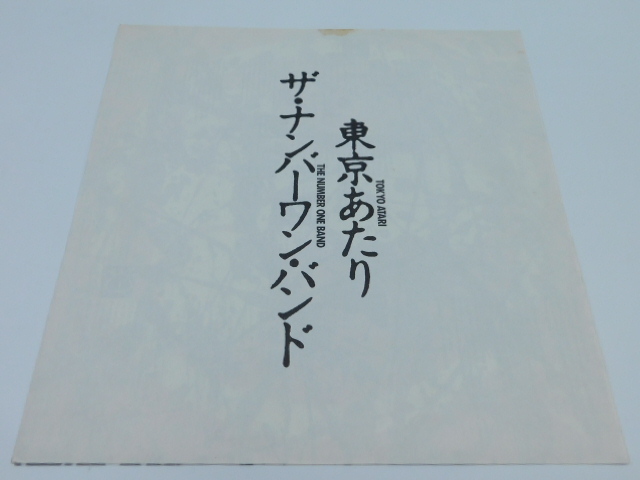 東京あたり
TOKYO ATARI
ザ・ナンバーワン・バンド
THE NUMBER ONE BAND